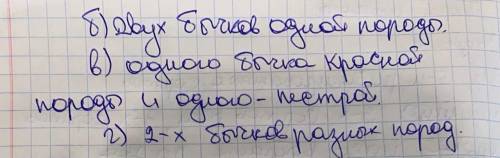 б) двух бычков одной породы.
в) одного бычка красной
породы и одного - пестрой.
г) 2-х бычков разных пород.